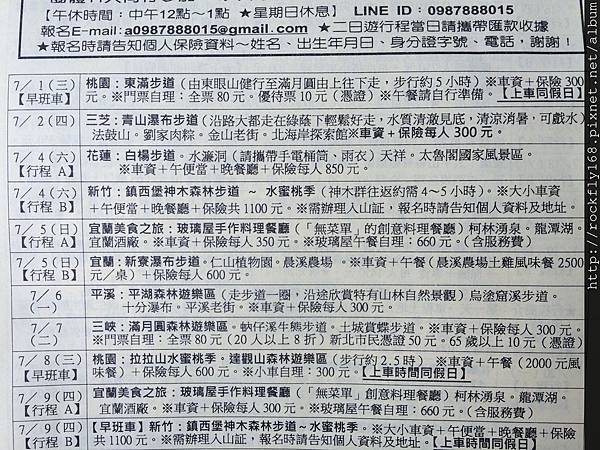 【午休時間：中午12點～1點 ★星期日休息】 LINE ID：0987888015
報名E-mail:a0987888015@gmail.com ★二日遊行程當日請攜帶匯款收據
★報名時請告知個人保險資料～姓名、出生年月日、身分證字號、電話，謝謝！
7／ 1（三）
【早班車】
桃園：東滿步道（由東眼山健行至滿月圓由上往下走，步行約5小時）※車資＋保險300
元。※門票自理：全票80元。優待票10元（憑證）※午餐請自行準備。【上車同假日】
7／ 2（四）
三芝：青山瀑布步道（沿路大都走在綠蔭下輕鬆好走，水質清澈見底，清涼消暑，可戲水）
法鼓山。劉家肉粽。金山老街。北海岸探索館※車資＋保險每人300元。
7／ 4（六）
【行程 A】
花蓮：白楊步道。水濂洞（請攜帶手電桶筒、雨衣）天祥。太魯閣國家風景區。
※車資＋午便當＋晚餐廳＋保險每人850元。
7／ 4（六）
【行程 B】
新竹：鎮西堡神木森林步道 ～ 水蜜桃季（神木群往返約需4～5小時）。※大小車資
＋午便當＋晚餐廳＋保險共1100元。※需辦理入山証，報名時請告知個人資料及地址。
7／ 5（日）
【行程 A】
宜蘭美食之旅：玻璃屋手作料理餐廳（「無菜單」的創意料理餐廳）柯林湧泉。龍潭湖。
宜蘭酒廠。※車資＋保險每人350元。※玻璃屋午餐自理：660元。（含服務費）
7／ 5（日）
【行程 B】
宜蘭：新寮瀑布步道。仁山植物園。晨溪農場 。※車資＋午餐（晨溪農場土雞風味餐2500
元／桌）＋保險每人600元。
7／ 6
（一）
平溪：平湖森林遊樂區（走步道一圈，沿途欣賞特有山林自然景觀）烏塗窟溪步道。
十分瀑布。平溪老街。※車資＋保險每人300元。
7／ 7
（二）
三峽：滿月圓森林遊樂區。蚋仔溪生態步道。土城賞蝶步道。※車資＋保險每人300元。
※門票自理：全票80元（20人以上8折）新北市民憑證50元。65歲以上10元（憑證）
7／ 8（三）
【早班車】
桃園：拉拉山水蜜桃季。達觀山森林遊樂區（步行約2.5時） ※車資＋午餐（2000元風
味餐）＋保險每人600元。※小車自理：300元。【上車時間同假日】
7／ 9（四）
【行程 A】
宜蘭美食之旅：玻璃屋手作料理餐廳（「無菜單」創意料理餐廳）柯林湧泉。龍潭湖。
宜蘭酒廠。※車資＋保險每人300元。※玻璃屋午餐自理：660元。（含服務費）
7／ 9（四）
【行程 B】
【早班車】新竹：鎮西堡神木森林步道～水蜜桃季。※大小車資＋午便當＋晚餐廳＋保險
共1100元。※需辦理入山証，報名時請告知個人資料及地址。【上車時間同假日】
http://rockfly168.pixnet.net/album